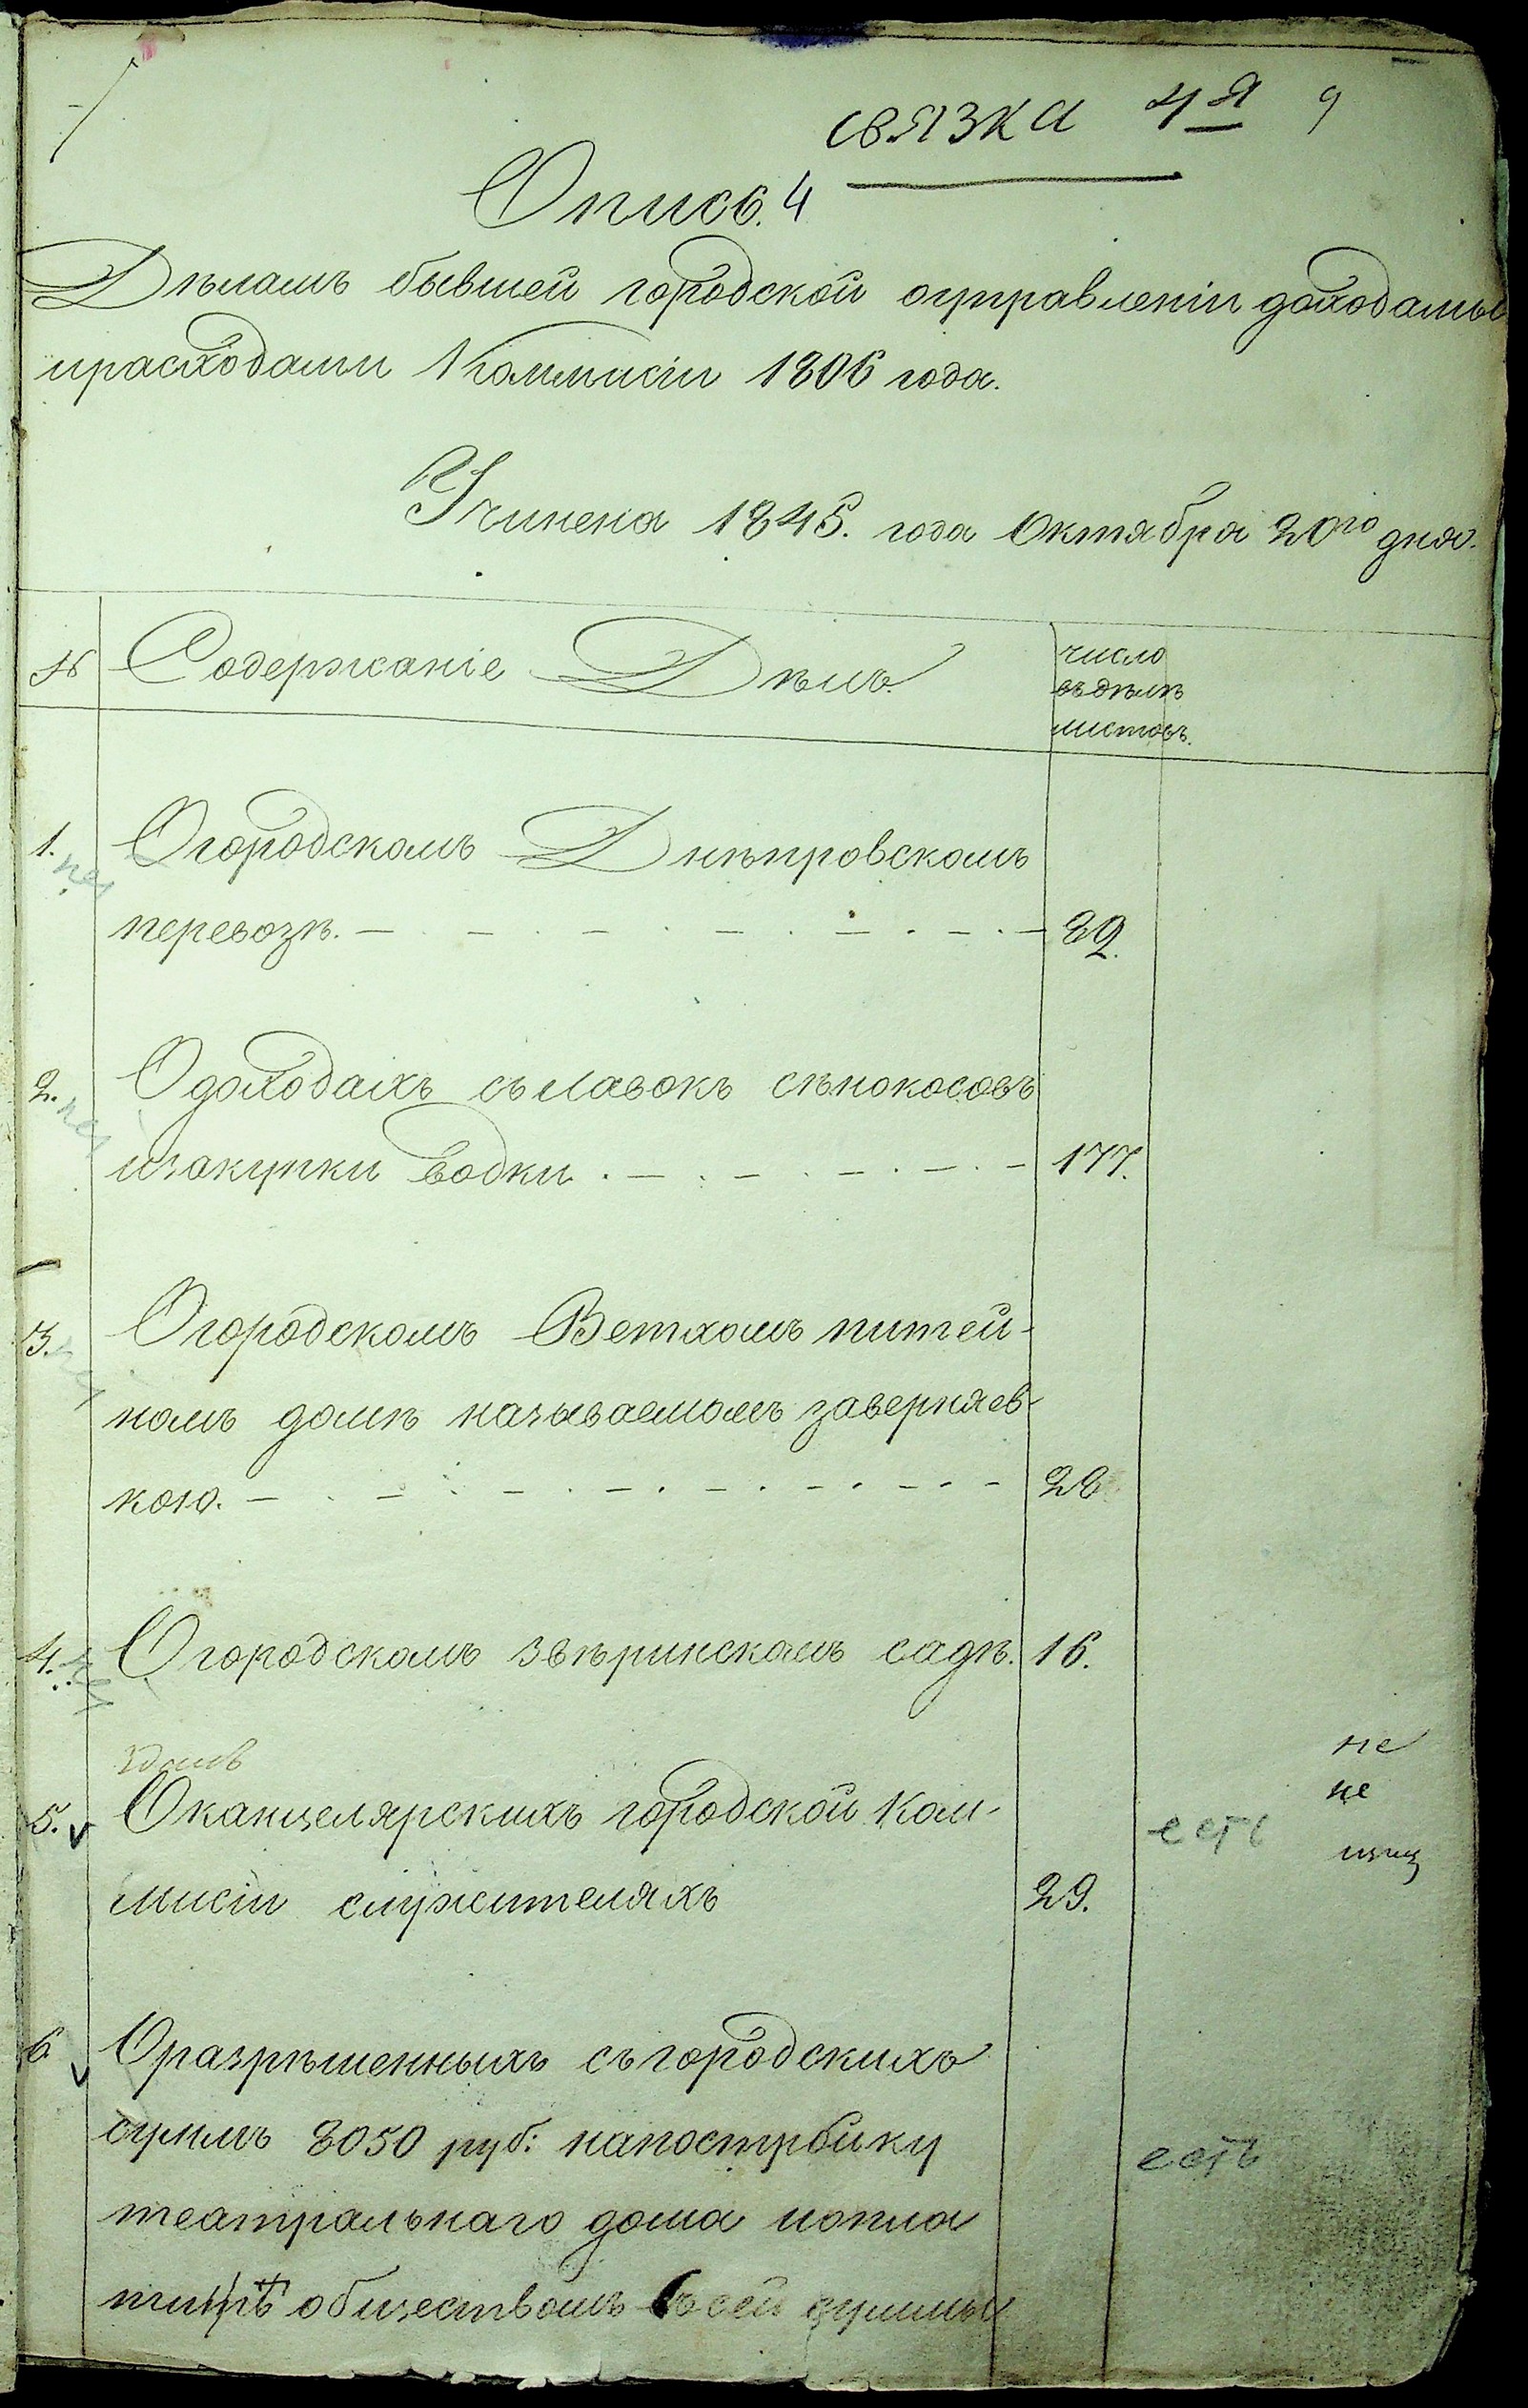 связка 4я 9
Опись. 4
Дѣламъ бывшей городской оуправленіи доходами
ирасходами Коммисіи 1806 года.
Учинена 1845. года Октября 20го дня.
№ Содержаніе Дѣлъ.
число
въ дѣлѣ
листовъ.
1. Огородскомъ Днѣпровскомъ
перевозѣ. 
2. Одоходахъ съ лавокъ сѣнокосовъ
изакупки водки 177.
3. Огородскомъ Ветхомъ питей-
номъ домѣ называемомъ заверняев-
кою. 28
4. Огородскомъ звѣринскомъ садѣ. 16.
не
не
5. Оканцелярскихъ городской Ком-
есть
мисіи служителяхъ 29.
6 Оразрѣшенныхъ съгородскихъ
суммъ 8050 руб: напостройку
есть
театральнаго дома иопла
обществомъ сей суммы